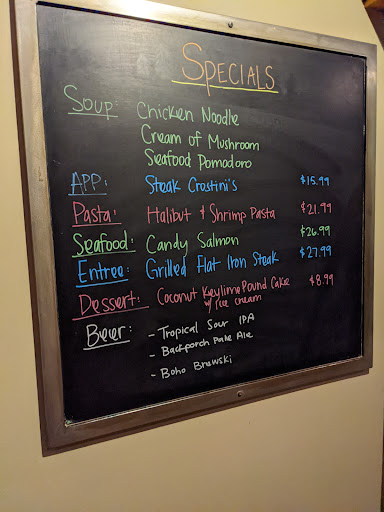 SPECIALS
Soup: Chicken Noodle
Cream of Mushroom
Seafood Pomodoro
APP: Steak Crostini's $15.99
Pasta: Halibut & Shrimp Pasta $21.99
Seafood: Candy Salmon $26.99
Entree: Grilled Flat Iron Steak $27.99
Dessert: Coconut Keylime Pound Cake $8.99
w/ Ice cream
Beer: - Tropical Sour IPA
- Backporch Pale Ale
- Boho Browski